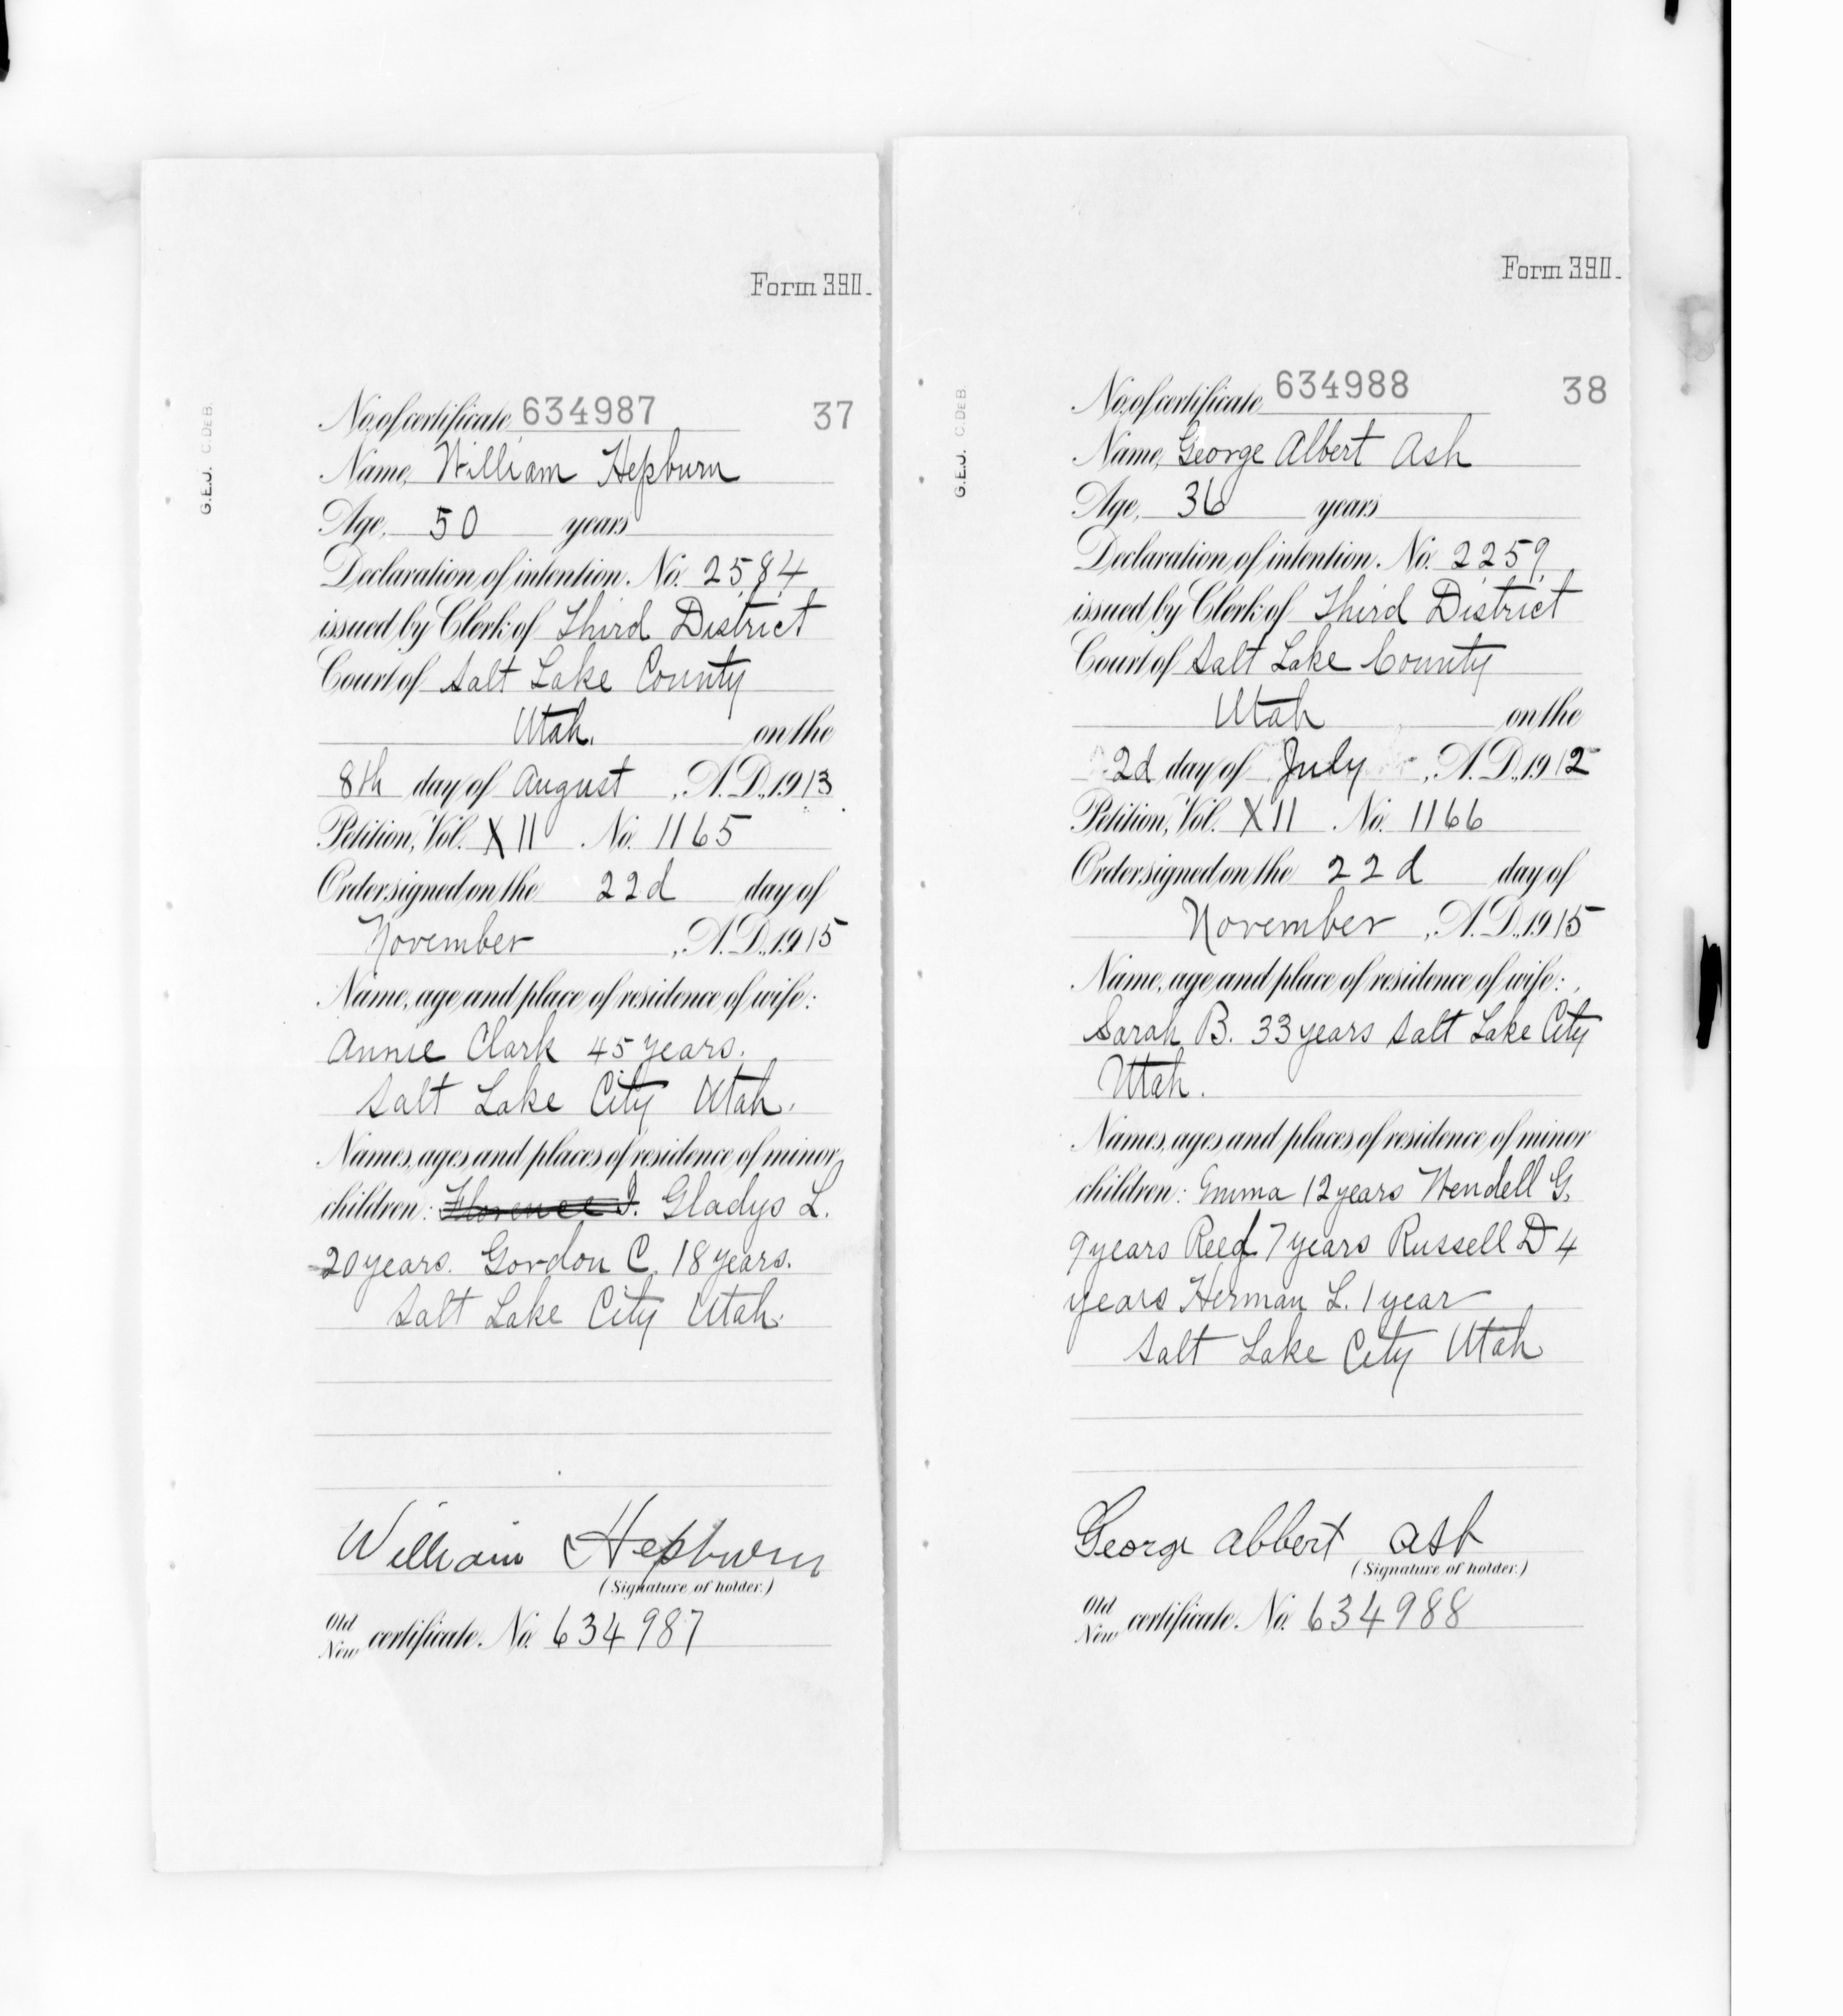 Form 390.
G.E.J. C. DEB.
No. of certificate, 634987 37
Name, William Hepburn
Age, 50 years
Declaration of intention. No. 2584
issued by Clerk of Third District
Court of Salt Lake County
Utah. on the
8th day of August , A. D., 1913
Petition, Vol. XII No. 1165
Order signed on the 22d day of
November , A. D., 1915
Name, age and place of residence of wife:
Annie Clark 45 years.
Salt Lake City Utah.
Names, ages and places of residence of minor
children: Florence I. Gladys L.
20 years. Gordon C. 18 years.
Salt Lake City Utah.
William Hepburn
(Signature of holder.)
Old
New certificate. No. 634987
Form 390.
G.E.J. C. DEB.
No. of certificate, 634988 38
Name, George Albert Ash
Age, 36 years
Declaration of intention. No. 2259
issued by Clerk of Third District
Court of Salt Lake County
Utah on the
2d day of July , A. D., 1912
Petition, Vol. XII No. 1166
Order signed on the 22d day of
November , A. D., 1915
Name, age and place of residence of wife:
Sarah B. 33 years Salt Lake City
Utah.
Names, ages and places of residence of minor
children: Emma 12 years Wendell G.
9 years Reed 7 years Russell D 4
years Herman L. 1 year
Salt Lake City Utah
George Albert Ash
(Signature of holder.)
Old
New certificate. No. 634988